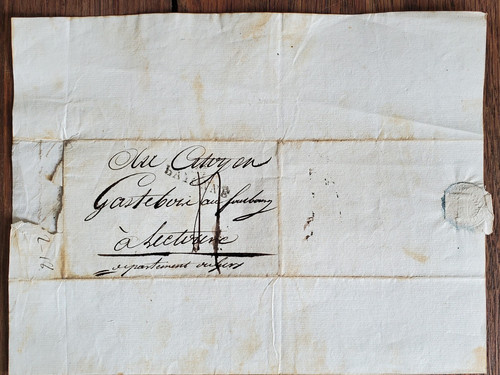 Au Citoyen
Gasteboir au faubourg
à Lectoure
département du Gers